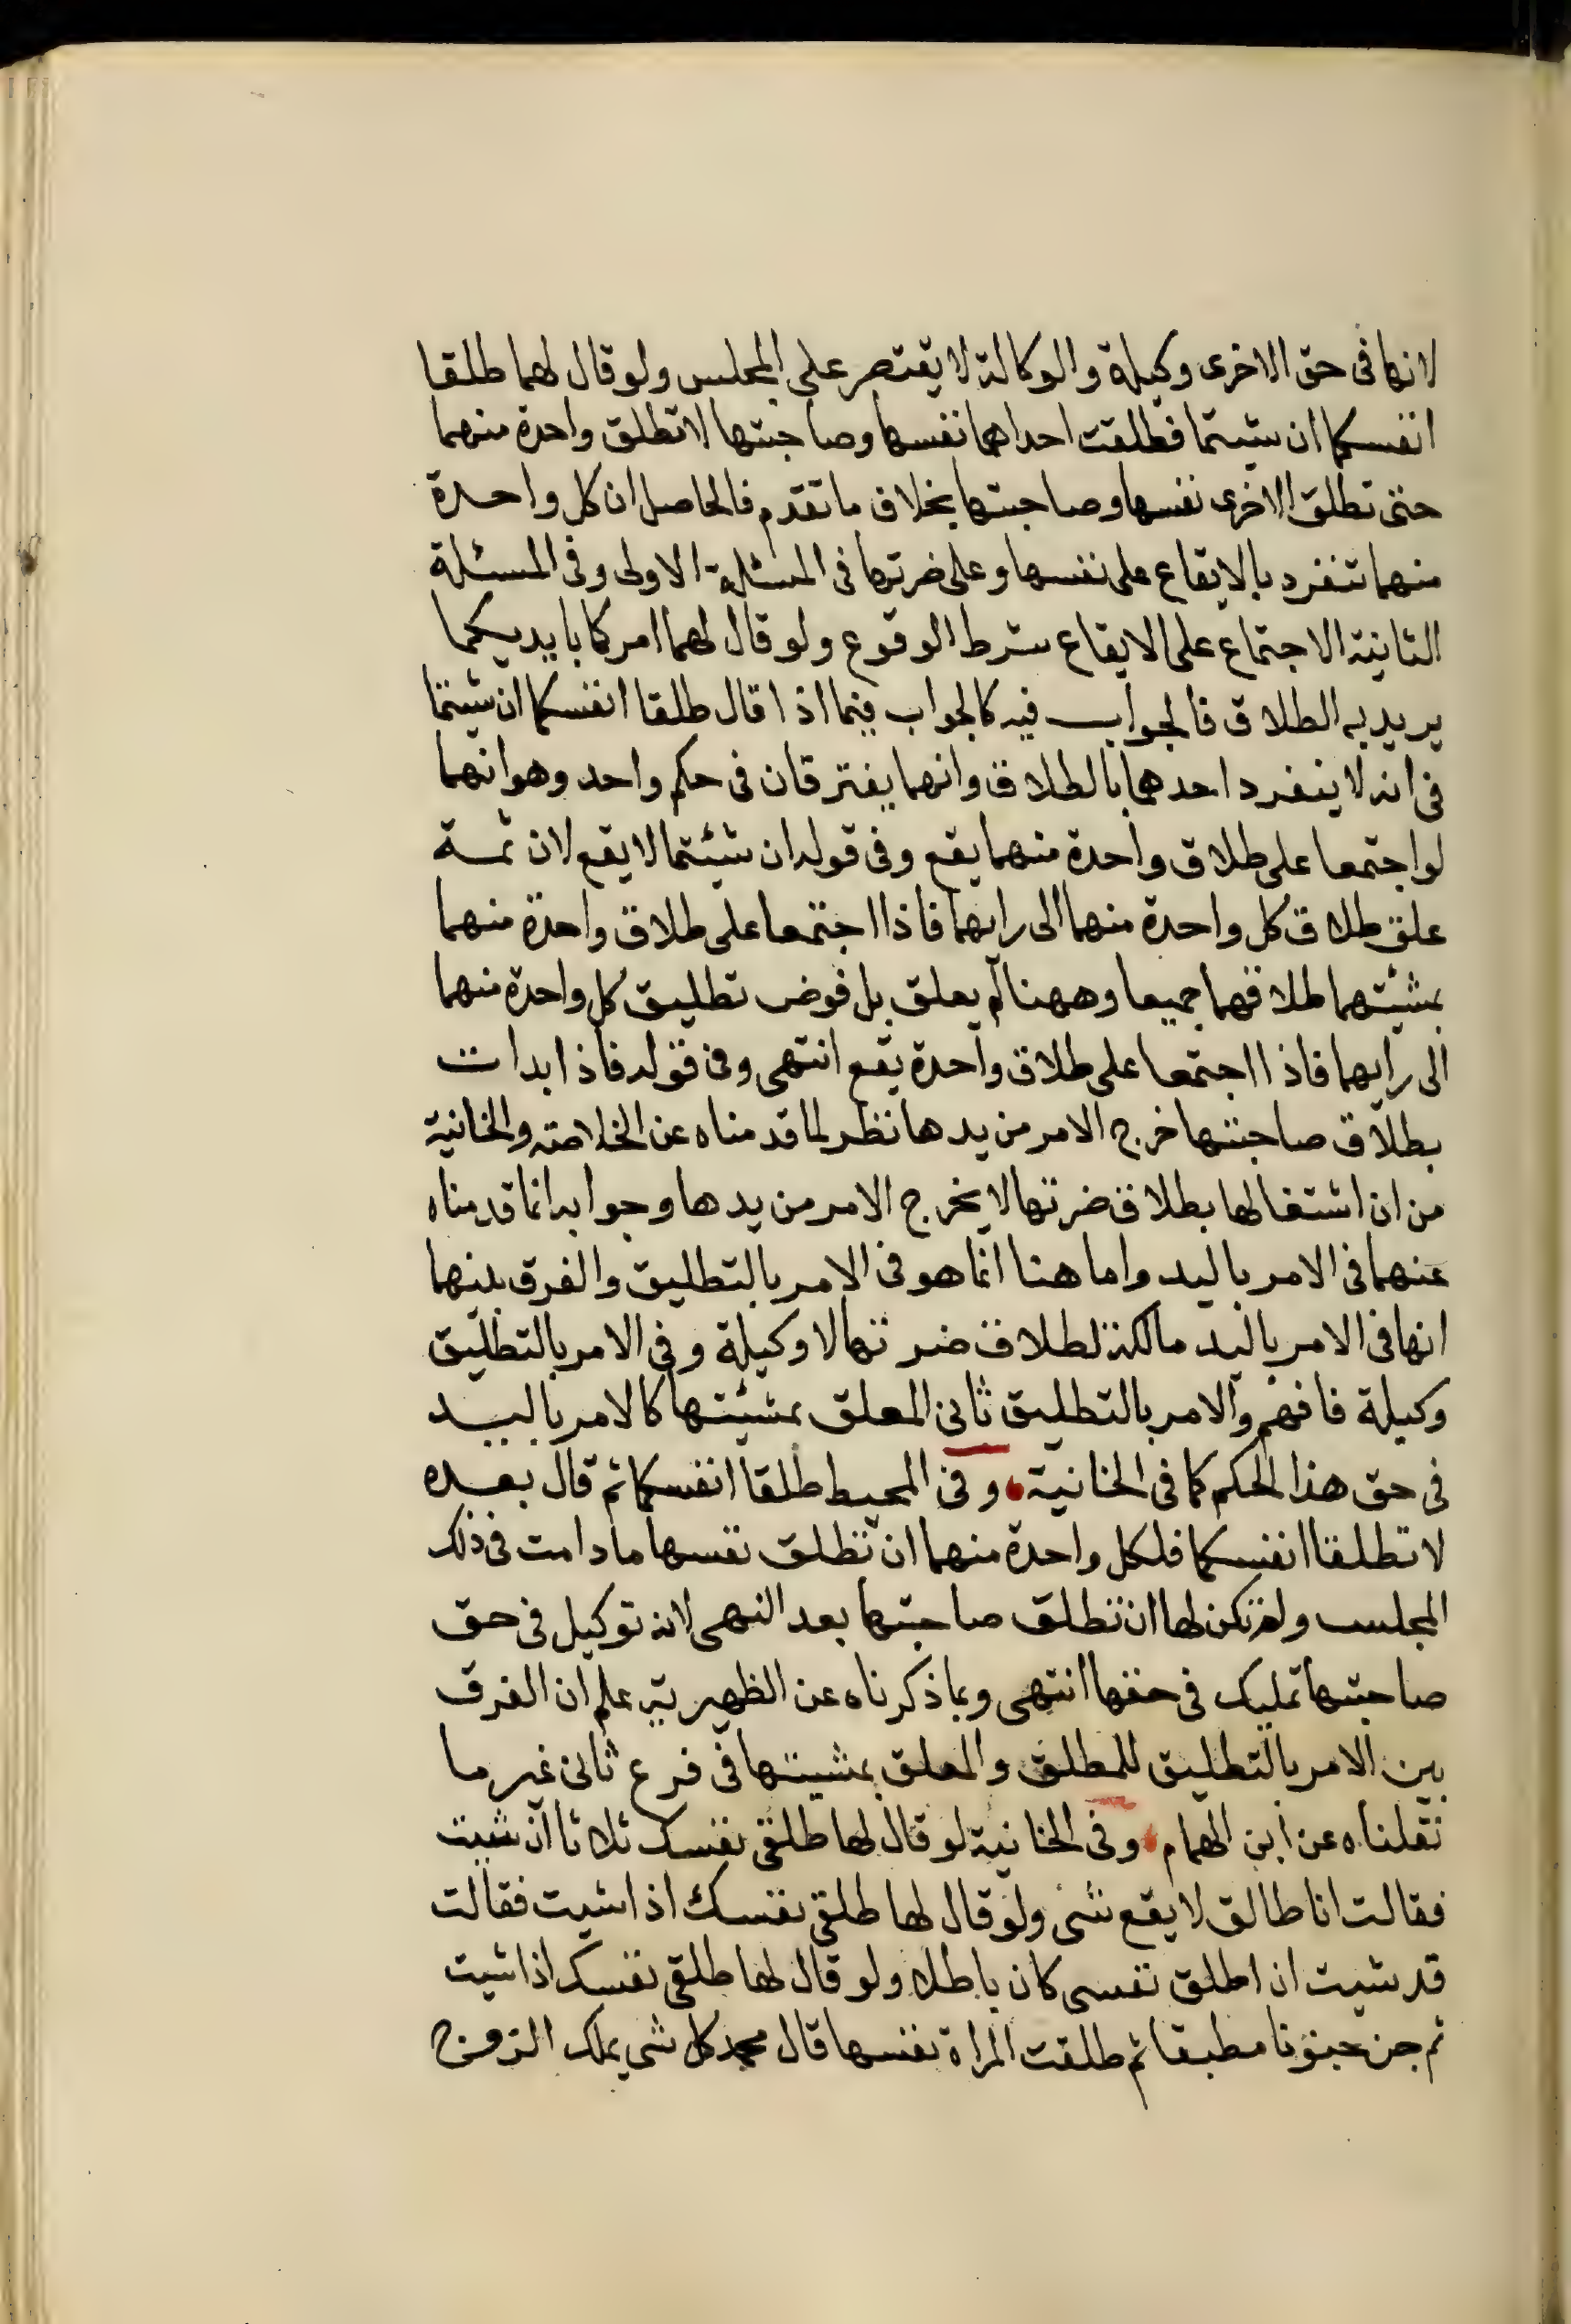 لانها فى حق الاخرى وكيلة والوكالة لا يقتصر على المجلس ولو قال لهما طلقا
انفسكما ان شيتما فطلقت احداهما نفسها وصاحبتها لا تطلق واحدة منهما
حتى تطلق الاخرى نفسها وصاحبتها بخلاف ما تقدم فالحاصل ان كل واحدة
منهما تنفرد بالايقاع على نفسها وعلى ضرتها فى المسئلة الاولى وفى المسئلة
الثانية الاجتماع على الايقاع شرط الوقوع ولو قال لهما امركما بايديكما
يريد به الطلاق فالجواب فيه كالجواب فيما اذا قال طلقا انفسكما ان شيتما
فى انه لا ينفرد احدهما بالطلاق وانهما يفترقان فى حكم واحد وهو انهما
لو اجتمعا على طلاق واحدة منهما يقع وفى قوله ان شئتما لا يقع لان ثمة
علق طلاق كل واحدة منهما الى رايهما فاذا اجتمعا على طلاق واحدة منهما
بمشئتهما طلاقهما جميعا وههنا لم يعلق بل فوض تطليق كل واحدة منهما
الى رايهما فاذا اجتمعا على طلاق واحدة يقع انتهى وفى قوله فاذا بدات
بطلاق صاحبتها خرج الامر من يدها نظر لما قدمناه عن الخلاصة والخانية
من ان اشتغالها بطلاق ضرتها لا يخرج الامر من يدها وجوابه انما قدمناه
عنهما فى الامر باليد واما هنا انما هو فى الامر بالتطليق والفرق بينهما
انها فى الامر باليد مالكة لطلاق ضرتها لا وكيلة وفى الامر بالتطليق
وكيلة فافهم والامر بالتطليق ثانى المعلق بمشئتها كالامر باليد
فى حق هذا الحكم كما فى الخانية وفى المحيط طلقا انفسكما ثم قال بعده
لا تطلقا انفسكما فلكل واحدة منهما ان تطلق نفسها ما دامت فى ذلك
المجلس ولم تكن لها ان تطلق صاحبتها بعد النهى لانه توكيل فى حق
صاحبتها تمليك فى حقها انتهى وبما ذكرناه عن الظهيرية علم ان الفرق
بين الامر بالتطليق للمطلق والمعلق بمشيتها فى فرع ثانى غير ما
نقلناه عن ابن الهمام وفى الخانية لو قال لها طلقى نفسك ثلاثا ان شيت
فقالت انا طالق لا يقع شى ولو قال لها طلقى نفسك اذا شيت فقالت
قد شيت ان اطلق نفسى كان باطلا ولو قال لها طلقى نفسك اذا شيت
ثم جن جنونا مطبقا ثم طلقت المراة نفسها قال محمد كل شى يملك الزوج